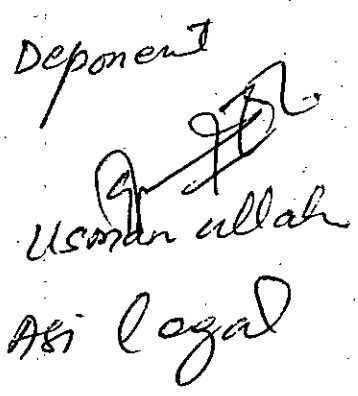 Deponent
Usman ullah
ASi legal